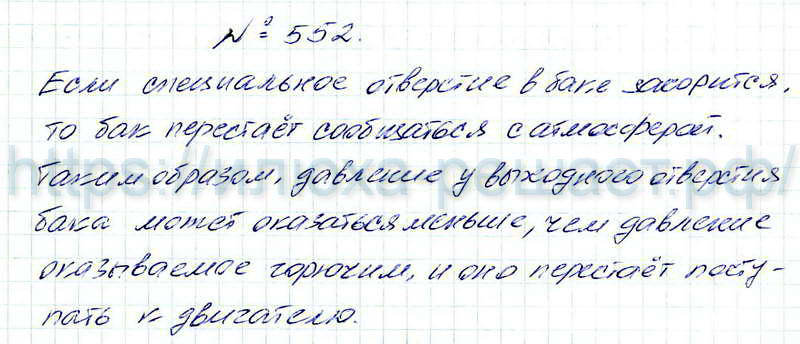 № 552.
Если специальное отверстие в баке засорится,
то бак перестаёт сообщаться с атмосферой.
Таким образом, давление у выходного отверстия
бака может оказаться меньше, чем давление
оказываемое горючим, и оно перестаёт посту-
пать к двигателю.